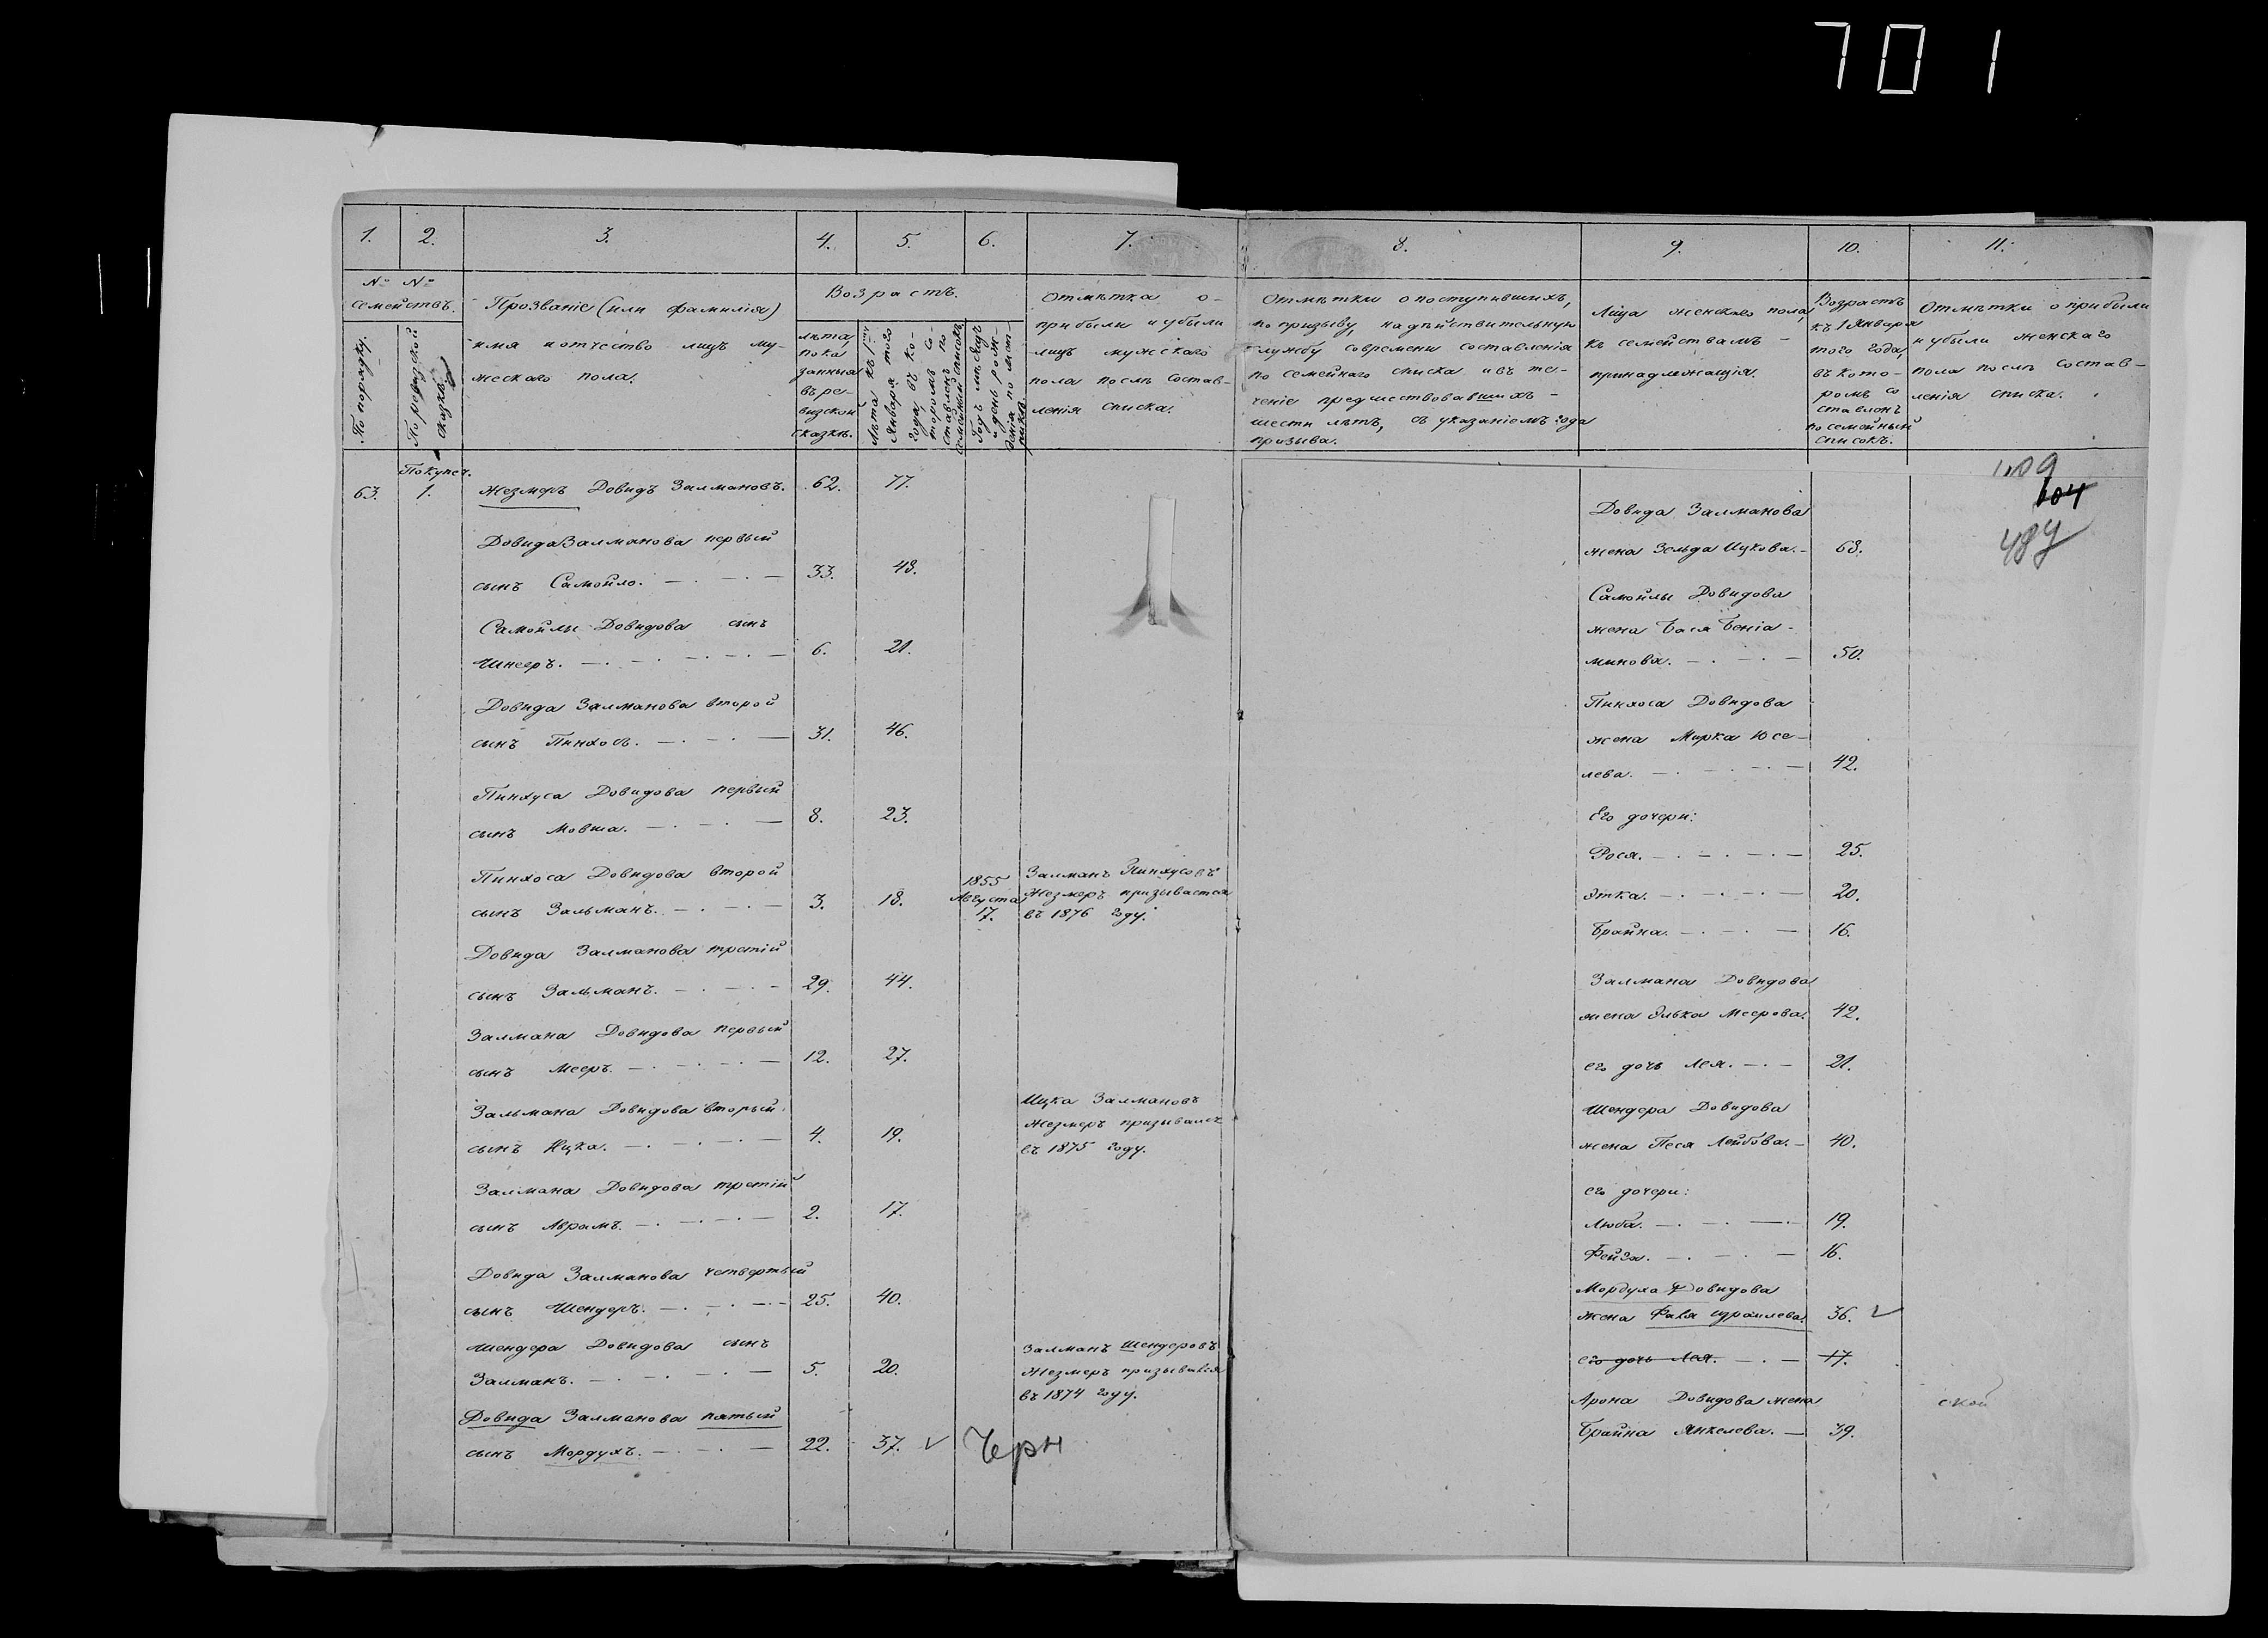 701
1. 2. 3. 4. 5. 6. 7. 8. 9. 10. 11.
№ №
Семействъ.
По порядку.
По ревизской
сказкѣ
Прозваніе (или фамилія)
имя и отчество лицъ му-
жескаго пола.
Возрастъ.
лѣта
пока
занныя
въ ре-
визской
сказкѣ.
Лѣта къ 1му
Января того
года, въ ко-
торомъ со-
ставленъ по
семейный списокъ
Годъ мѣсяцъ
и день рожд-
Отмѣтка о-
прибыли и убыли
лицъ мужескаго
пола послѣ состав-
ленія списка.
Отмѣтки о поступившихъ,
по призыву, на дѣйствительную
службу современи составленія
по семейнаго списка и въ те-
ченіе предшествовавшихъ -
шести лѣтъ, съ указаніемъ года
призыва.
Лица женскаго пола,
къ семействамъ -
принадлежащія.
Возрастъ
къ 1 Января
того года,
въ кото-
ромъ со
ставленъ
по семейный
списокъ.
Отмѣтки о прибыли
и убыли женскаго
пола послѣ состав-
ленія списка.
Покупеч.
63. 1. Жезмеръ Довидъ Залмановъ. 62. 77.
Довида Залманова первый
сынъ Самойло. 33. 48.
Самойлы Довидова сынъ
6. 21.
Довида Залманова второй
сынъ Пинхосъ. 31. 46.
Пинхуса Довидова первый
сынъ Мовша. 8. 23.
Пинхоса Довидова второй
сынъ Зальманъ. 3. 18.
1855
Августа
17.
Залманъ Пинхусовъ
Жезмеръ призывается
въ 1876 году.
Довида Залманова третій
сынъ Зальманъ. 29. 44.
Залмана Довидова первый
сынъ Мееръ. 12. 27.
Зальмана Довидова вторый
сынъ Ицка. 4. 19.
Ицка Залмановъ
Жезмеръ призывался
въ 1875 году.
Залмана Довидова третій
сынъ Абрамъ. 2. 17.
Довида Залманова четвертый
сынъ Шендеръ. 25. 40.
Шендера Довидова сынъ
Залманъ. 5. 20.
Залманъ Шендеровъ
Жезмеръ призывался
въ 1874 году.
Довида Залманова пятый
сынъ Мордухъ. 22. 37. √ Черн
104
Довида Залманова
жена Зельда Ицкова. 68.
Самойлы Довидова
жена Бася Беніа-
минова. 50.
Пинхоса Довидова
жена Мирка Юсе-
лева. 42.
Его дочери:
Рося. 25.
Этка. 20.
Брайна. 16.
Залмана Довидова
жена Элька Меерова. 42.
его дочь Лея. 21.
Шендера Довидова
жена Песя Лейбова. 40.
его дочери:
Люба. 19.
Фейга. 16.
Мордуха Довидова
жена Израилева. 36. √
его дочь Лея. 17.
Арона Довидова жена
Брайна Янкелева. 39.